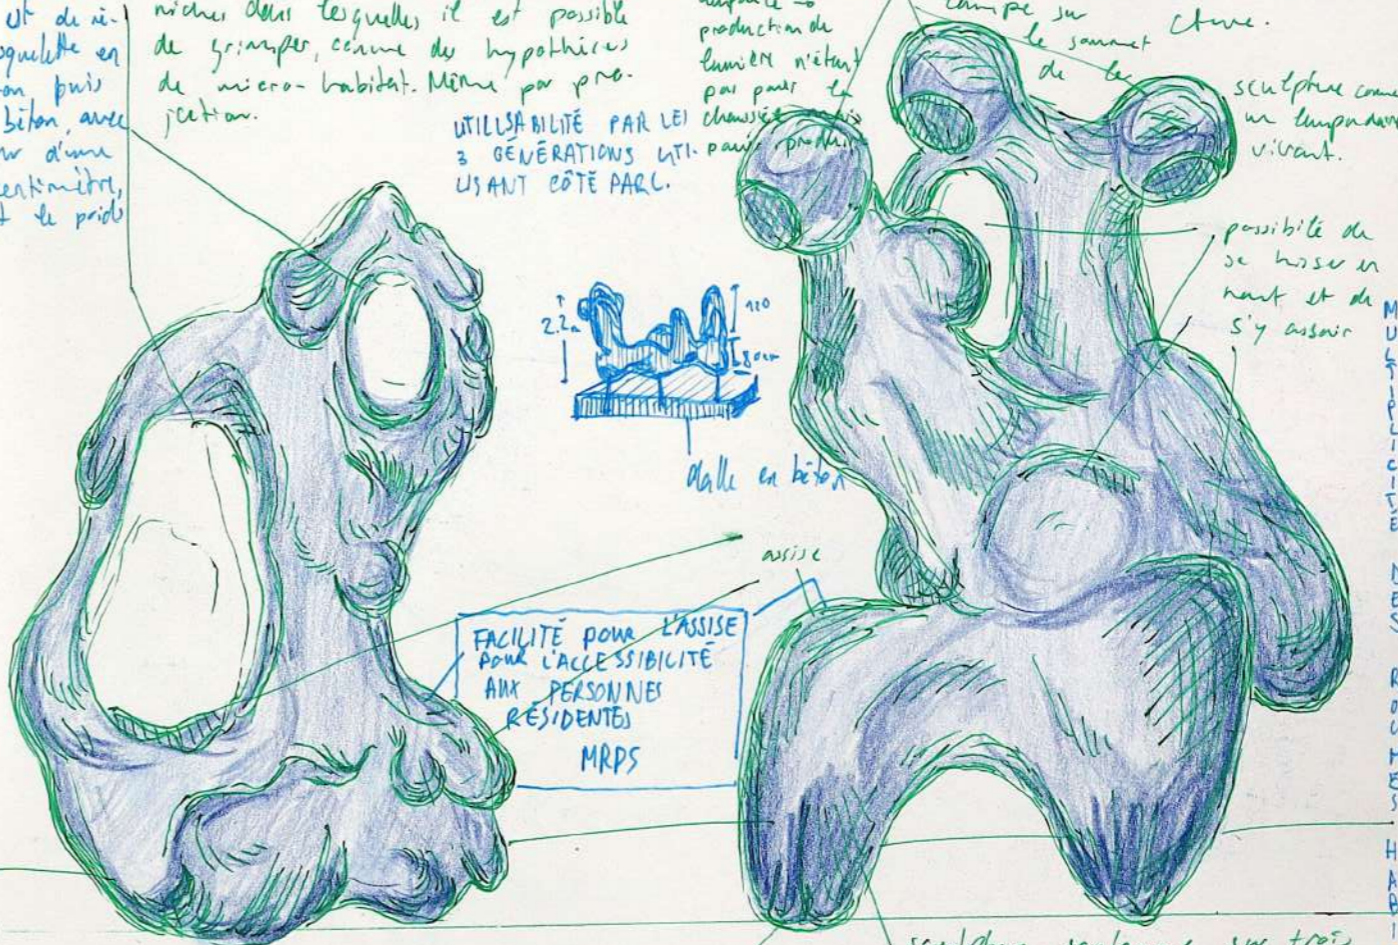 est de ré-
squelette en
puis
béton, avec
d'une
centimètre,
le poids
niches dans lesquelles il est possible
de grimper, comme des hypothèses
de micro-habitat. Même par pro-
jection.
UTILISABILITÉ PAR LES
3 GÉNÉRATIONS UTI-
LISANT CÔTÉ PARC.
production de
lumière n'étant
pas pour la
chaussée
lampe sur
le sommet
de la
sculpture comme
un lampadaire
vivant.
possibilité de
se hisser en
haut et de
s'y assoir
2.2m
120
80cm
dalle en béton
assise
FACILITÉ POUR L'ASSISE
POUR L'ACCESSIBILITÉ
AUX PERSONNES
RÉSIDENTES
MRPS
MULTIPLICITÉ
sculpture sur trois